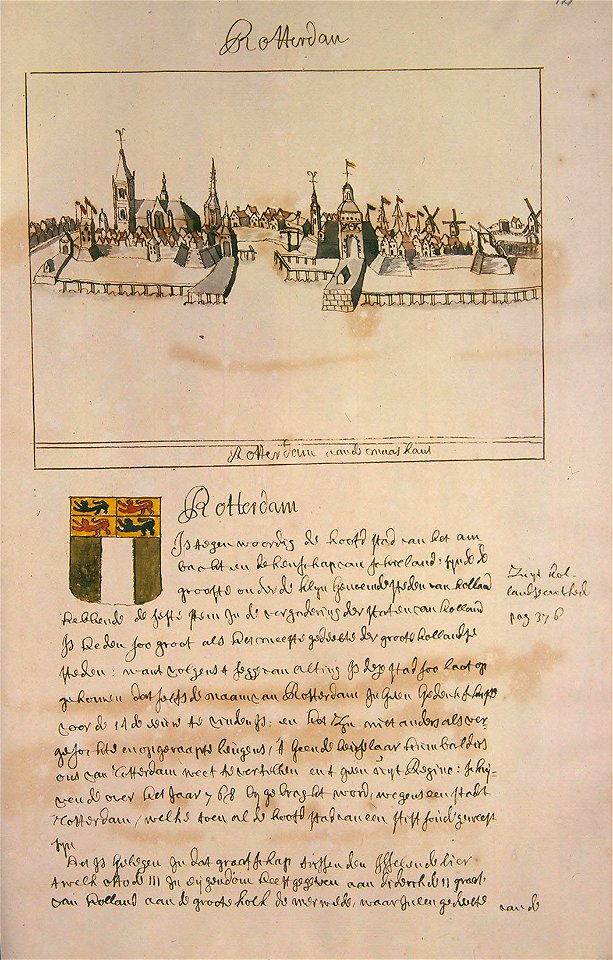 Rotterdam
Rotterdam aan de maas kant
Rotterdam
Is tegenwoordig de hooft stad van het am
bacht en dekenschap van schieland: zynde de
grootste onder de kleyn genoemde steden van holland
hebbende de seste stem in de vergadering der staten van holland
Is heden soo groot als het meeste gedeelte der groote hollandse
steden: want volgens 't segge van alting is dese stad soo laat op
gekomen dat selfs de naam van Rotterdam in geen gedenk schrift
voor de 14 de eeuw te vinden is: en het zyn niet anders als ver
gesochte en opgeraapte leugens, 't geen de
ons van Rotterdam weet te vertellen en 't geen uyt Regino: schry-
vende over het Jaar 768 by gebragt word, wegens een stadt
Rotterdam, welke toen al de hooft stad van een stift soude geweest
syn
Het is gelegen in dat graefschap tussen den Issel en de lier
't welk otto de III in eygendom heeft gegeven aan diderick de II graef
van Holland aan de groote kolk de merwede, waar in een gedeelte
van de
Zuyt hol
landse
pag 376